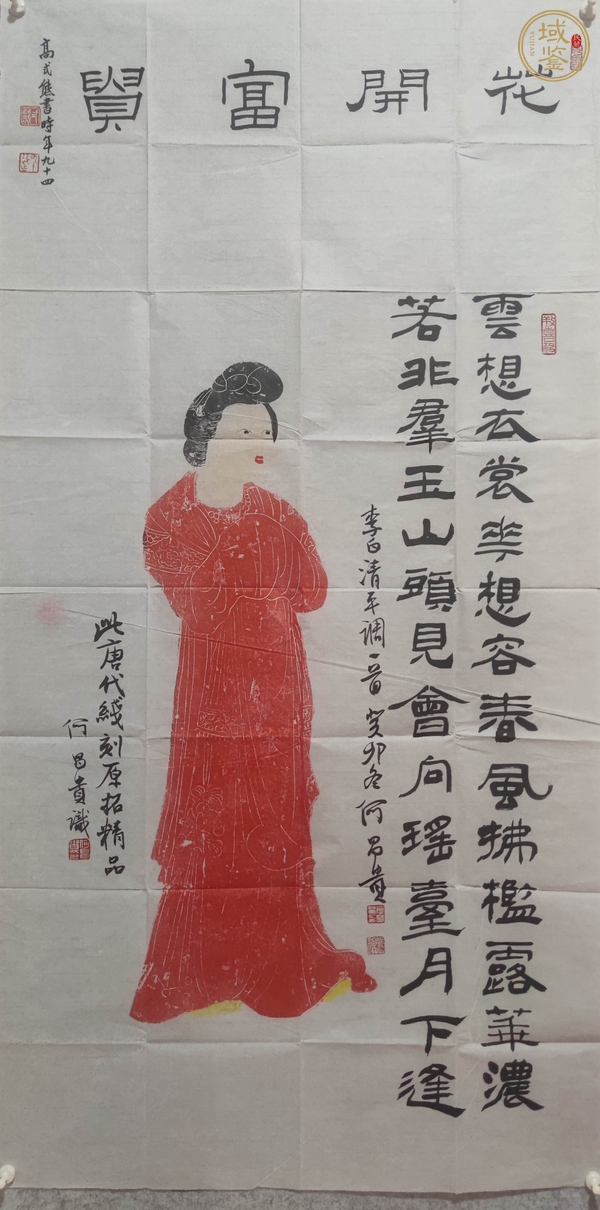 花開富貴
高式熊書時年九十四
雲想衣裳華想容春風拂檻露華濃
若非羣玉山頭見會向瑤臺月下逢
李白清平调一首癸卯冬何昌貴
此唐代綫刻原拓精品
何昌貴識
域鉴
YUJIAN